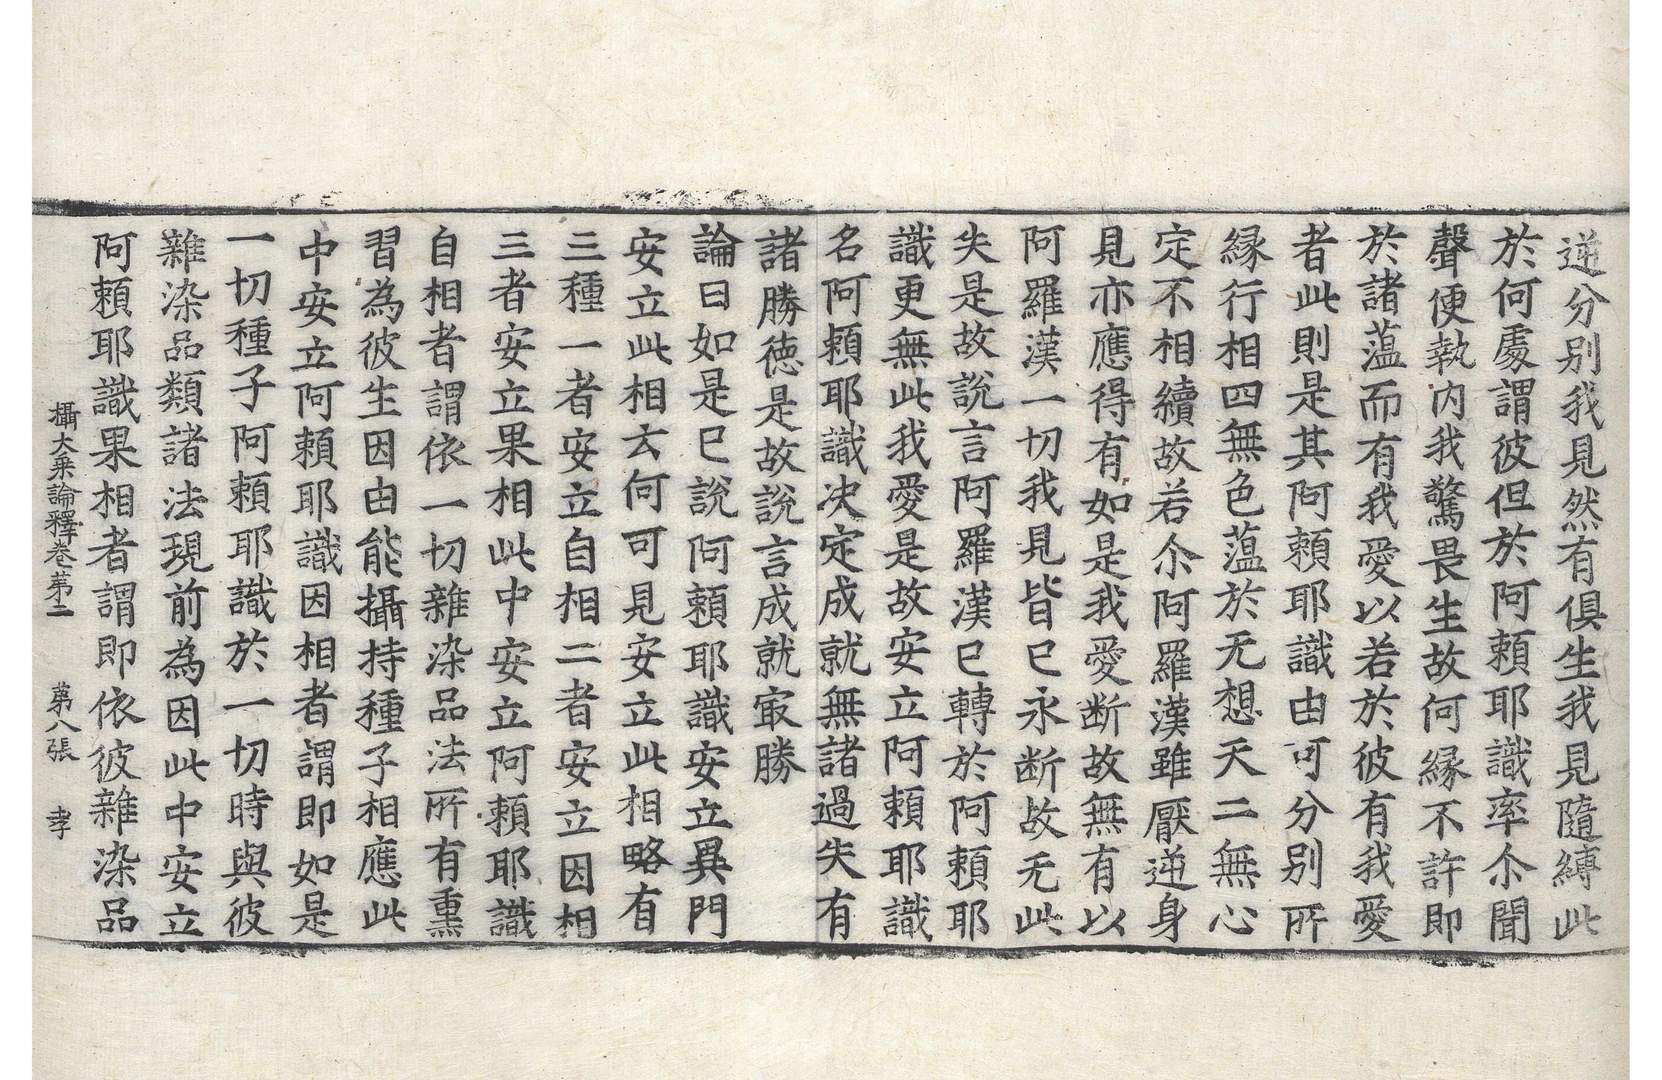 逆分別我見然有俱生我見隨縛此
於何處謂彼但於阿賴耶識率尒聞
聲便執內我驚畏生故何緣不許即
於諸薀而有我愛以若於彼有我愛
者此則是其阿賴耶識由可分別所
緣行相四無色薀於无想天二無心
定不相續故若尒阿羅漢雖厭逆身
見亦應得有如是我愛断故無有以
阿羅漢一切我見皆已永断故无此
失是故說言阿羅漢已轉於阿賴耶
識更無此我愛是故安立阿賴耶識
名阿賴耶識决定成就無諸過失有
諸勝德是故說言成就㝡勝
論曰如是已說阿賴耶識安立異門
安立此相云何可見安立此相略有
三種一者安立自相二者安立因相
三者安立果相此中安立阿賴耶識
自相者謂依一切雜染品法所有熏
習為彼生因由能攝持種子相應此
中安立阿賴耶識因相者謂即如是
一切種子阿賴耶識於一切時與彼
雜染品類諸法現前為因此中安立
阿賴耶識果相者謂即依彼雜染品
攝大乘論釋卷苐二 苐八張 孝